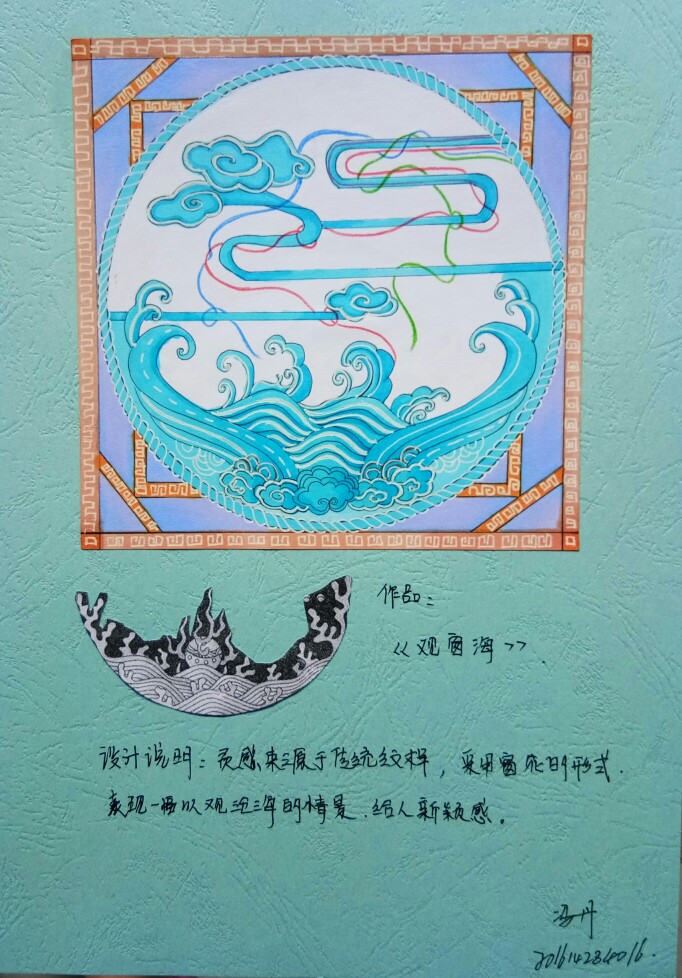 作品：
《观窗海》
设计说明：灵感来源于传统纹样，采用窗花的形式.
表现一幅以观沧海的情景.给人新颖感。
冯丹
201614234016.